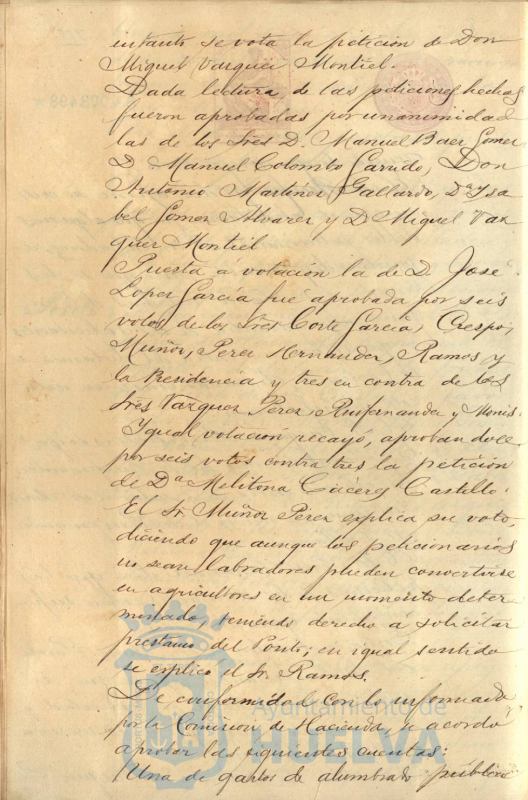 intanto se vota la petición de Don
Miguel Vazquez Montiel.
Dada lectura, de las peticiones hechas
fueron aprobadas por unanimidad
las de los Sres D. Manuel Baez Gomez
D Manuel Colombo Garrido, Don
Antonio Martinez Gallardo, Dª Ysa
bel Gomez Alvarez y D Miguel Vaz
quez Montiel
Puesta a votación la de D. José
Lopez Garcia fué aprobada por seis
votos de los Sres Corte Garcia, Crespo,
Muñoz, Perez Hernandez, Ramos y
la Presidencia y tres en contra de los
Sres Vazquez Perez, y
Ygual votación recayó, aprobandose
por seis votos contra tres la petición
de Dª Melitona Cáceres Castillo.
El Sr. Muñoz Perez explica su voto,
diciendo que aunque los peticionarios
no sean labradores pueden convertirse
en agricultores en un momento deter
minado, teniendo derecho á solicitar
prestamo del Pósito; en igual sentido
se explicó el Sr. Ramos.
De conformidad con lo informado
por la Comision de Hacienda, se acordó
aprobar las siguientes cuentas:
Una de gastos de alumbrado público
Ayuntamiento de
HUELVA